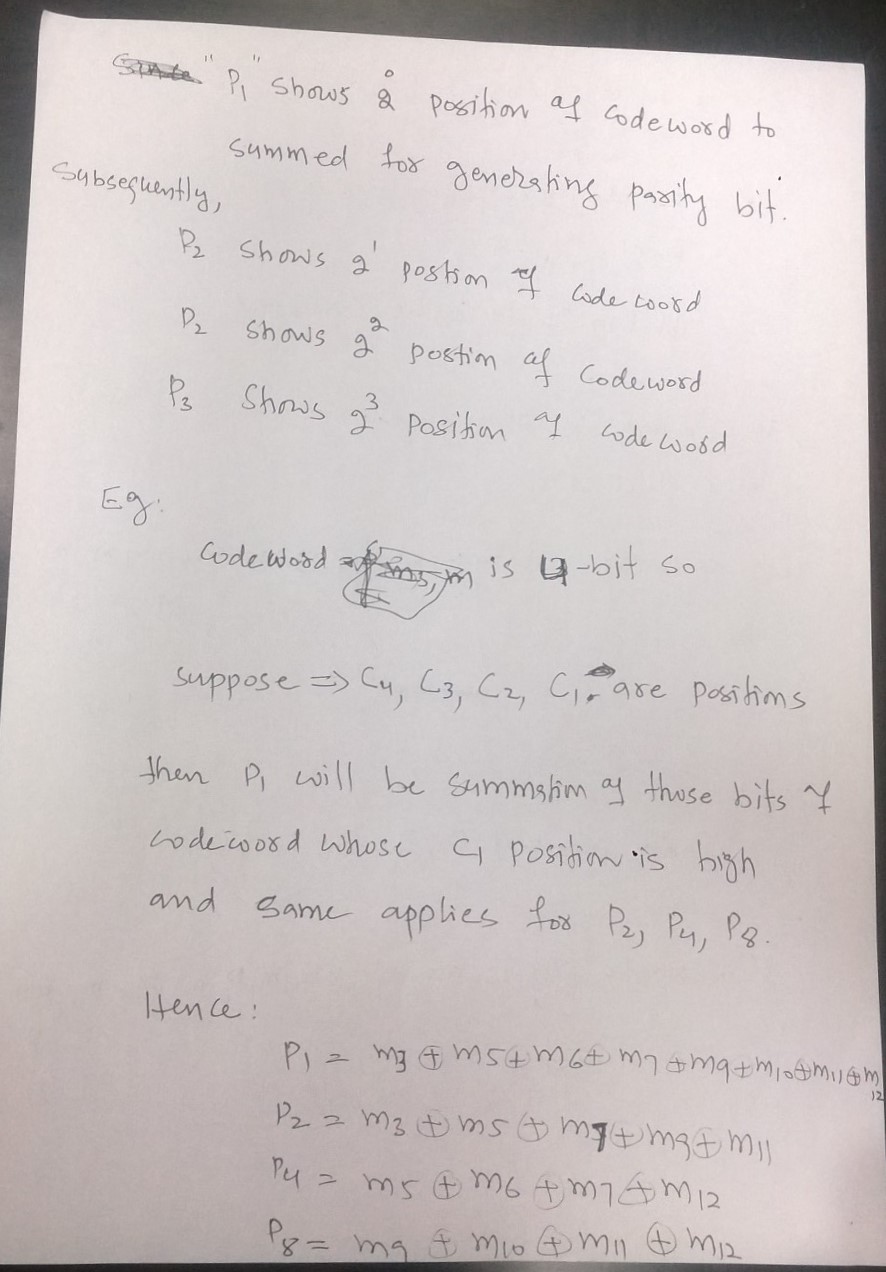 "P1" shows 2^0 position of codeword to
summed for generating parity bit.
Subsequently,
P2 shows 2^1 postion of code word
P2 shows 2^2 postion of Codeword
P3 Shows 2^3 Position of codeword
Eg:
Codeword is 4-bit so
suppose => C4, C3, C2, C1 are positions
then P1 will be summation of those bits of
codeword whose C1 position is high
and same applies for P2, P4, P8.
Hence:
P1 = m3 ⊕ m5 ⊕ m6 ⊕ m7 ⊕ m9 ⊕ m10 ⊕ m11 ⊕ m12
P2 = m3 ⊕ m5 ⊕ m7 ⊕ m9 ⊕ m11
P4 = m5 ⊕ m6 ⊕ m7 ⊕ m12
P8 = m9 ⊕ m10 ⊕ m11 ⊕ m12